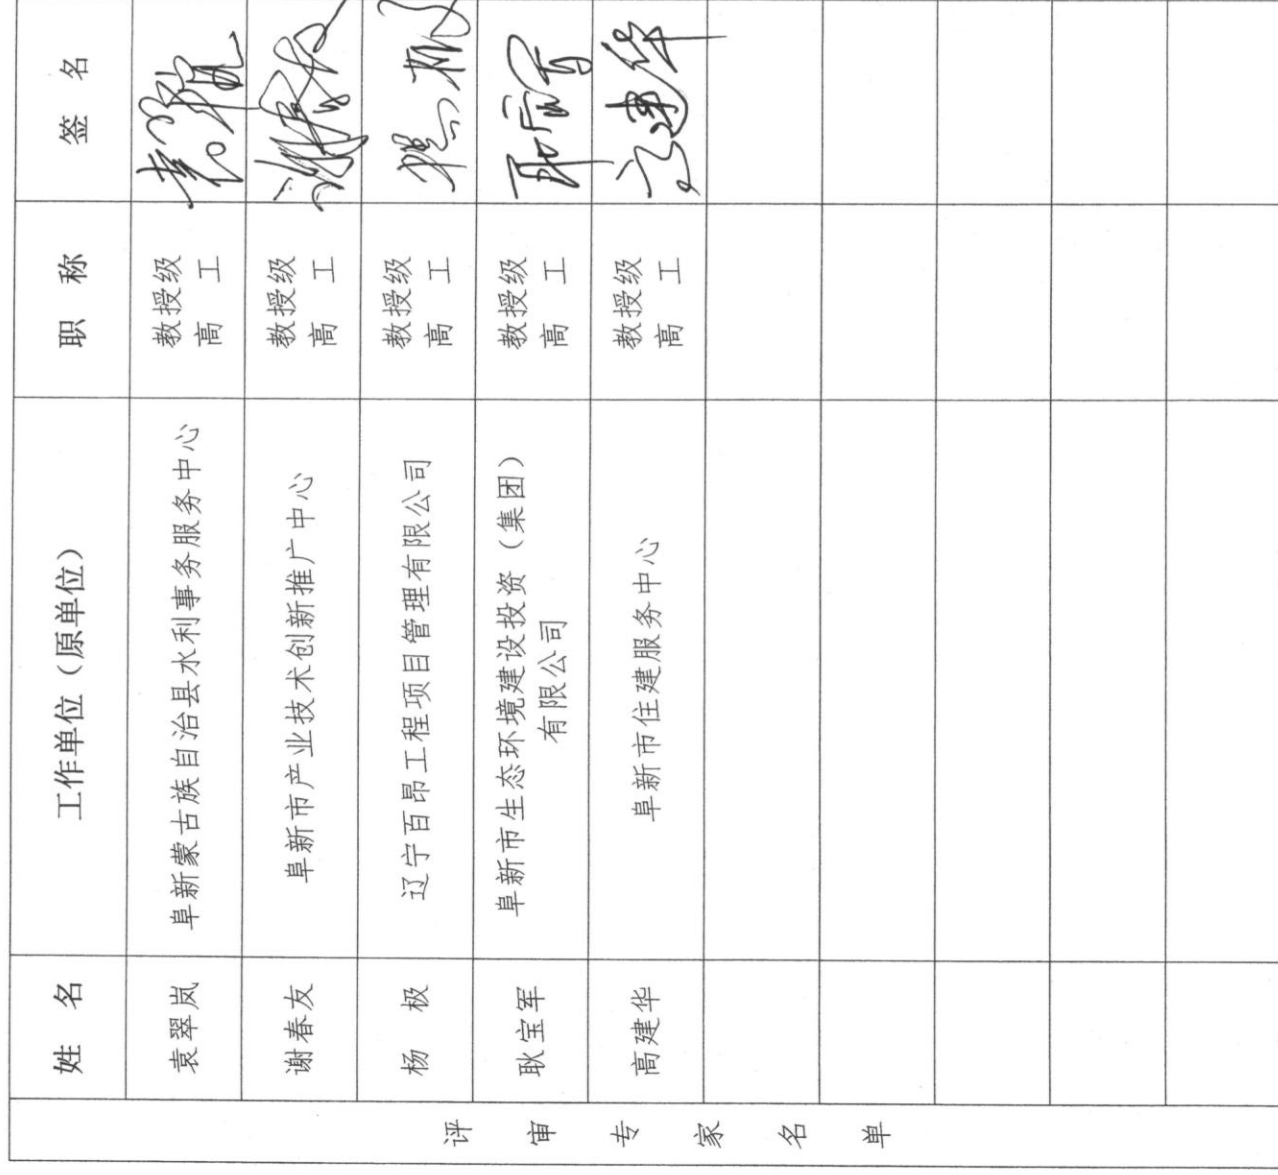 评审专家名单
姓 名 工作单位（原单位） 职 称 签 名
袁翠岚 阜新蒙古族自治县水利事务服务中心 教授级
高 工
谢春友 阜新市产业技术创新推广中心 教授级
高 工
杨 极 辽宁百昂工程项目管理有限公司 教授级
高 工
耿宝军 阜新市生态环境建设投资（集团）
有限公司 教授级
高 工
高建华 阜新市住建服务中心 教授级
高 工